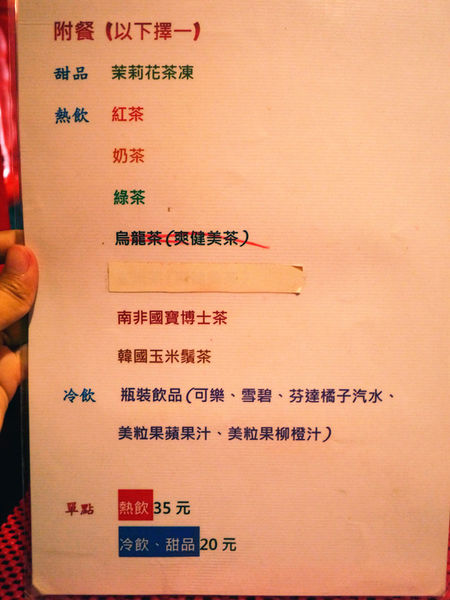 附餐 (以下擇一)
甜品 茉莉花茶凍
熱飲 紅茶
奶茶
綠茶
烏龍茶(爽健美茶)
南非國寶博士茶
韓國玉米鬚茶
冷飲 瓶裝飲品(可樂、雪碧、芬達橘子汽水、
美粒果蘋果汁、美粒果柳橙汁)
單點 熱飲 35 元
冷飲、甜品 20 元